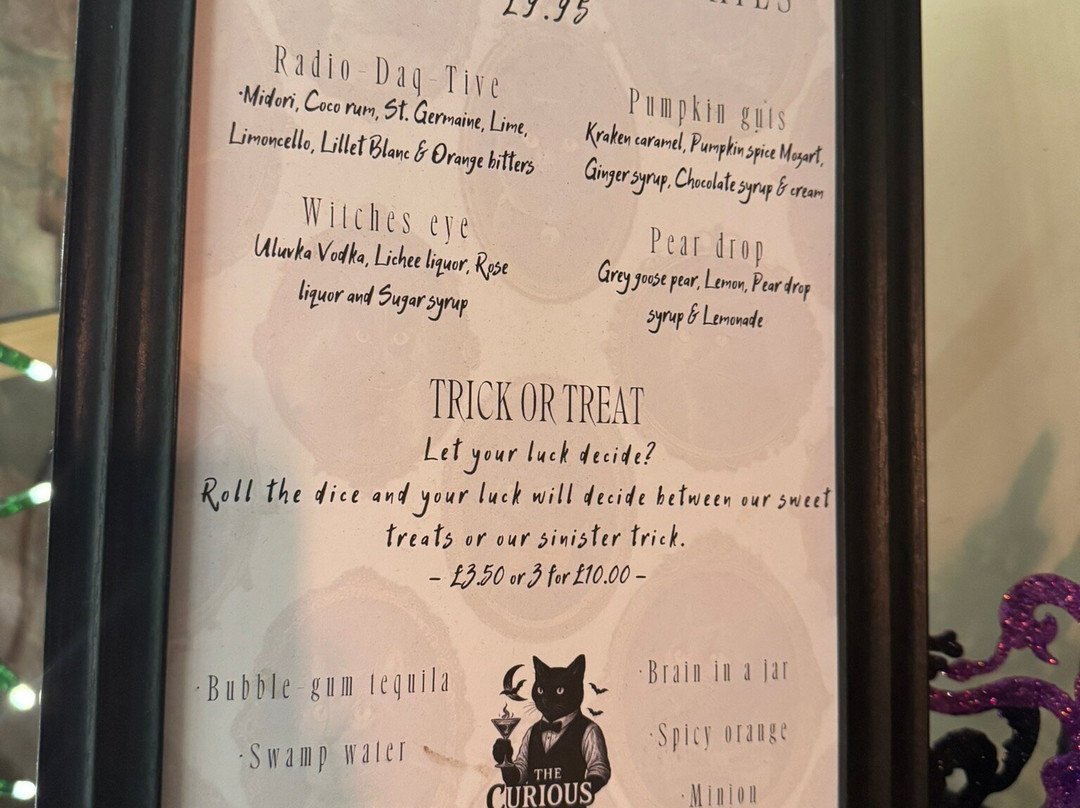 £9.95
Radio-Daq-Tive
·Midori, Coco rum, St. Germaine, Lime,
Limoncello, Lillet Blanc & Orange bitters
Pumpkin guts
Kraken caramel, Pumpkin spice Mozart,
Ginger syrup, Chocolate syrup & cream
Witches eye
Uluvka Vodka, Lichee liquor, Rose
liquor and Sugar syrup
Pear drop
Grey goose pear, Lemon, Pear drop
syrup & Lemonade
TRICK OR TREAT
Let your luck decide?
Roll the dice and your luck will decide between our sweet
treats or our sinister trick.
- £3.50 or 3 for £10.00 -
·Bubble-gum tequila
·Swamp water
·Brain in a jar
·Spicy orange
·Minion
THE
CURIOUS